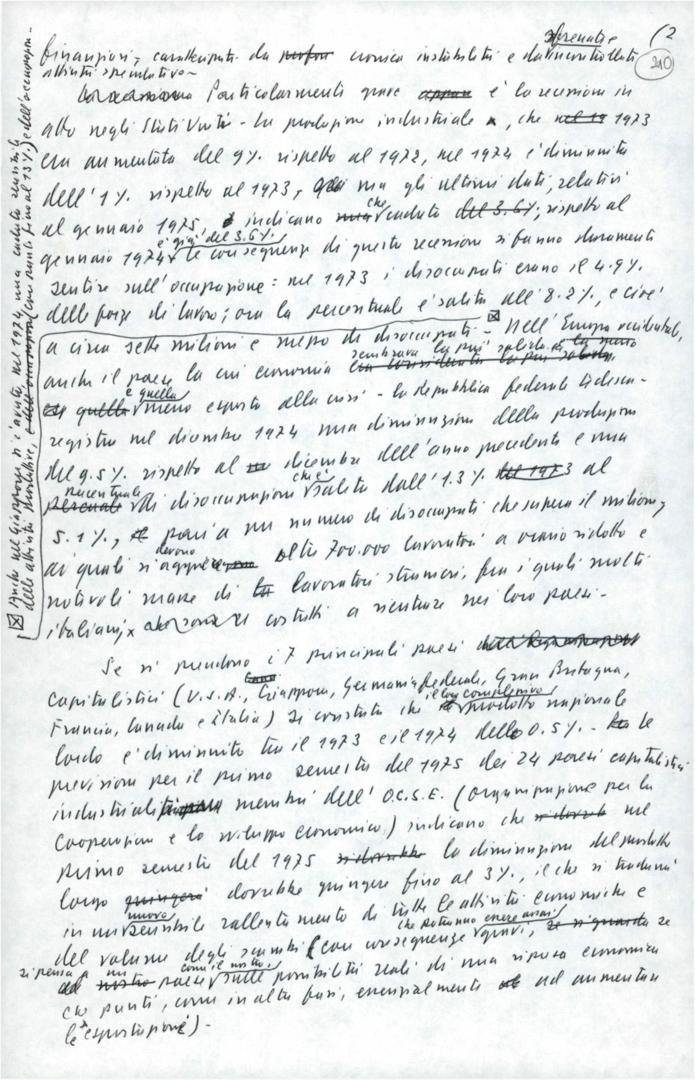 sfrenate (2
210
finanziari, caratterizzata da cronica instabilità e da incontrollate
attività speculative-
Particolarmente grave è la recessione in
atto negli Stati Uniti - La produzione industriale, che nel 1973
era aumentata del 9% rispetto al 1972, nel 1974 è diminuita
dell'1% rispetto al 1973, ma gli ultimi dati, relativi
al gennaio 1975, indicano che la caduta rispetto al
gennaio 1974 è già del 3.6%. Le conseguenze di questa recessione si fanno duramente
sentire sull'occupazione: nel 1973 i disoccupati erano il 4.9%
delle forze di lavoro; ora la percentuale è salita all'8.2%, e cioè
a circa sette milioni e mezzo di disoccupati - Nell'Europa occidentale,
anche il paese la cui economia sembrava la più solida
è quella meno esposta alla crisi - la Repubblica federale tedesca -
registra nel dicembre 1974 una diminuzione della produzione
del 9.5% rispetto al dicembre dell'anno precedente e una
percentuale di disoccupazione che è salita dall'1.3% al
5.1%, pari a un numero di disoccupati che supera il milione,
ai quali si devono aggiungere oltre 700.000 lavoratori a orario ridotto e
notevoli masse di lavoratori stranieri, fra i quali molti
italiani, costretti a rientrare nei loro paesi-
Se si prendono i 7 principali paesi
capitalistici (U.S.A., Giappone, Germania federale, Gran Bretagna,
Francia, Canada e Italia) si constata che il loro complessivo prodotto nazionale
lordo è diminuito tra il 1973 e il 1974 dello 0.5% - le
previsioni per il primo semestre del 1975 dei 24 paesi capitalistici
industriali membri dell'O.C.S.E. (Organizzazione per la
Cooperazione e lo sviluppo economico) indicano che nel
primo semestre del 1975 la diminuzione del prodotto
lordo dovrebbe giungere fino al 3%, il che si tradurrà
in un nuovo sensibile rallentamento di tutte le attività economiche e
del volume degli scambi (con conseguenze che potranno essere assai gravi, se
si pensa a un paese come il nostro, sulle possibilità reali di una ripresa economica
che punti, come in altre fasi, essenzialmente ad aumentare
le esportazioni) -
Anche nel Giappone si è avuta, nel 1974, una caduta sensibile
delle attività produttive, e dell'occupazione